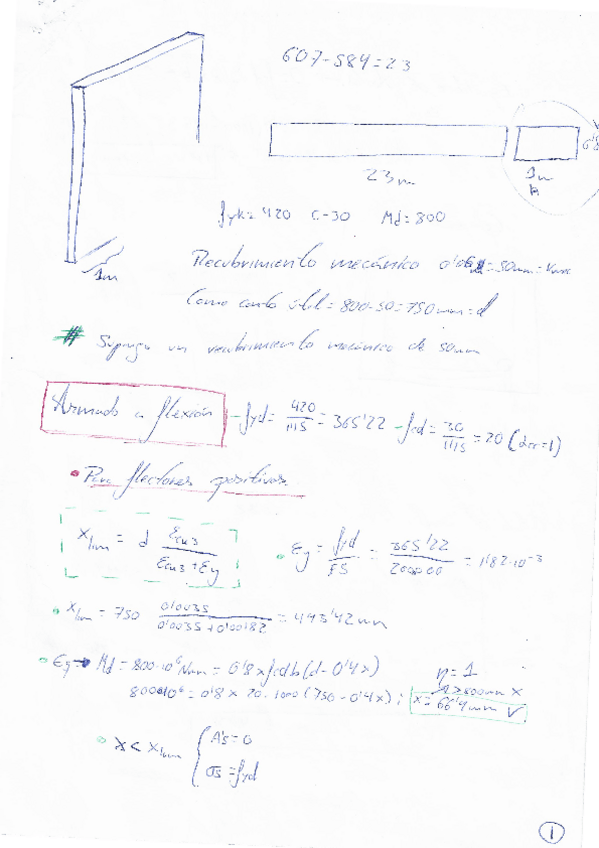 607-584=23
0'8
23m
1m
b
fyk=420 C-30 Md=800
1m
Recubrimiento mecánico =50mm=
Como canto útil=800-50=750mm=d
# Supongo un recubrimiento mecánico de 50mm
Armado a flexión - fyd = 420/1'15 = 365'22 - fcd = 30/1'15 = 20 (αcc=1)
• Para flectores positivos.
Xlim = d εcu3/(εcu3+εy) • εy = fyd/ES = 365'22/200000 = 1'82·10⁻³
• Xlim = 750 0'0035/(0'0035+0'00182) = 493'42mm
• Eq→ Md=800·10⁶Nmm=0'8xfcdb(d-0'4x) η=1
800·10⁶=0'8x 20·1000(750-0'4x); x>800mm X
x=66'4mm ✓
• x< xlim { A's=0
σs=fyd
1